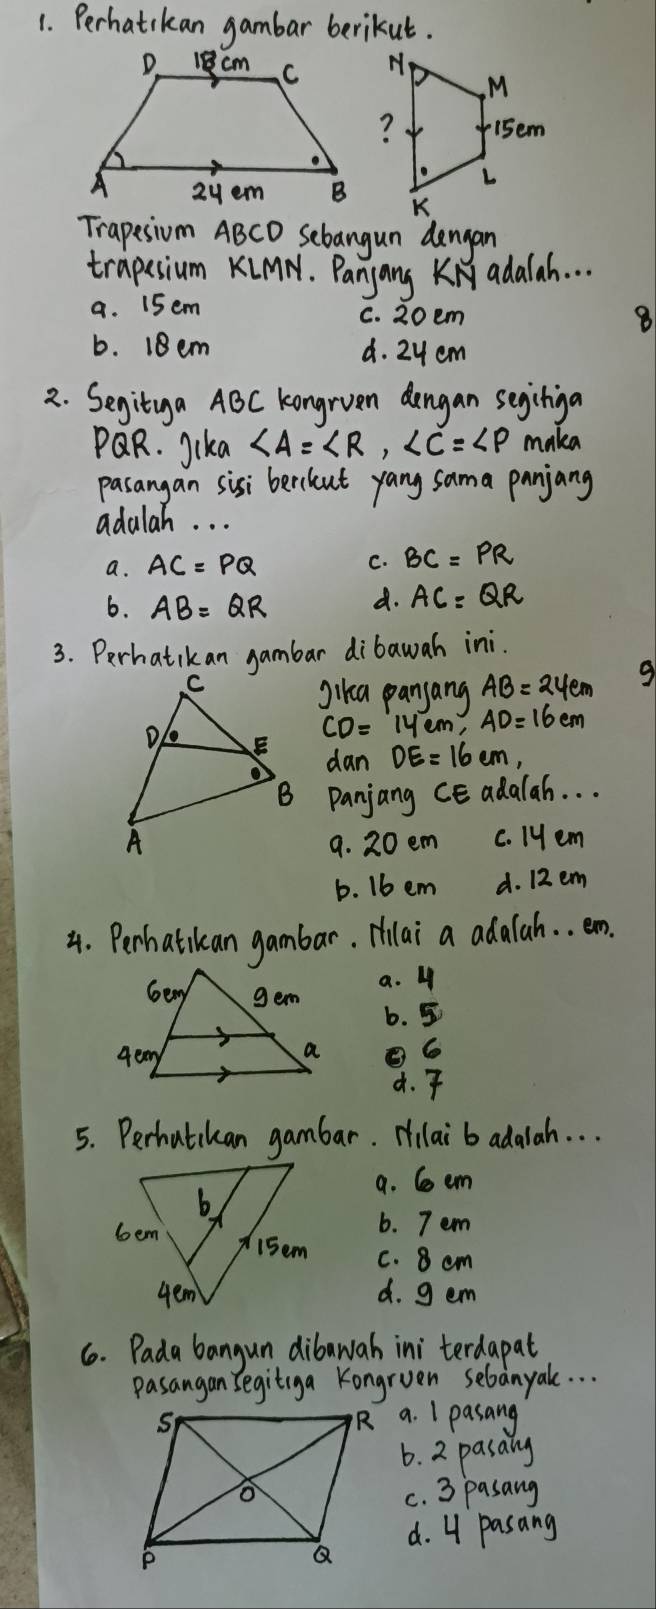 1. Perhatikan gambar berikut.
D 18 cm C
A 24 cm B
N M
? 15 cm
L
K
Trapesium ABCD sebangun dengan
trapesium KLMN. Panjang KN adalah...
a. 15 cm c. 20 cm
b. 18 cm d. 24 cm
8
2. Segitiga ABC kongruen dengan segitiga
PQR. Jika <A = <R, <C = <P maka
pasangan sisi berikut yang sama panjang
adalah ...
a. AC = PQ c. BC = PR
b. AB = QR d. AC = QR
3. Perhatikan gambar dibawah ini.
C
D E
B
A
Jika panjang AB = 24 cm
CD = 14 cm, AD = 16 cm
dan DE = 16 cm,
Panjang CE adalah...
a. 20 cm c. 14 cm
b. 16 cm d. 12 cm
9
4. Perhatikan gambar. Nilai a adalah.. cm.
6 cm 9 cm
4 cm a
a. 4
b. 5
c 6
d. 7
5. Perhatikan gambar. Nilai b adalah...
b
6 cm 15 cm
4 cm
a. 6 cm
b. 7 cm
c. 8 cm
d. 9 cm
6. Pada bangun dibawah ini terdapat
pasangan segitiga kongruen sebanyak...
S R
O
P Q
a. 1 pasang
b. 2 pasang
c. 3 pasang
d. 4 pasang